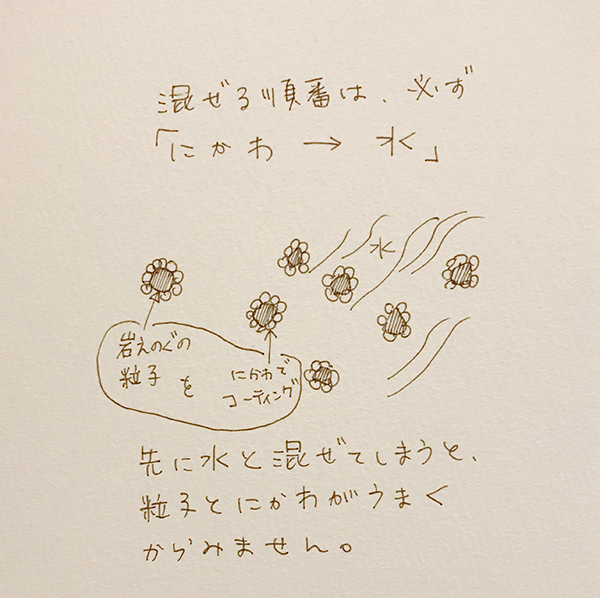 混ぜる順番は、必ず
「にかわ → 水」
水
岩えのぐの
粒子 を
にかわで
コーティング
先に水と混ぜてしまうと、
粒子とにかわがうまく
からみません。